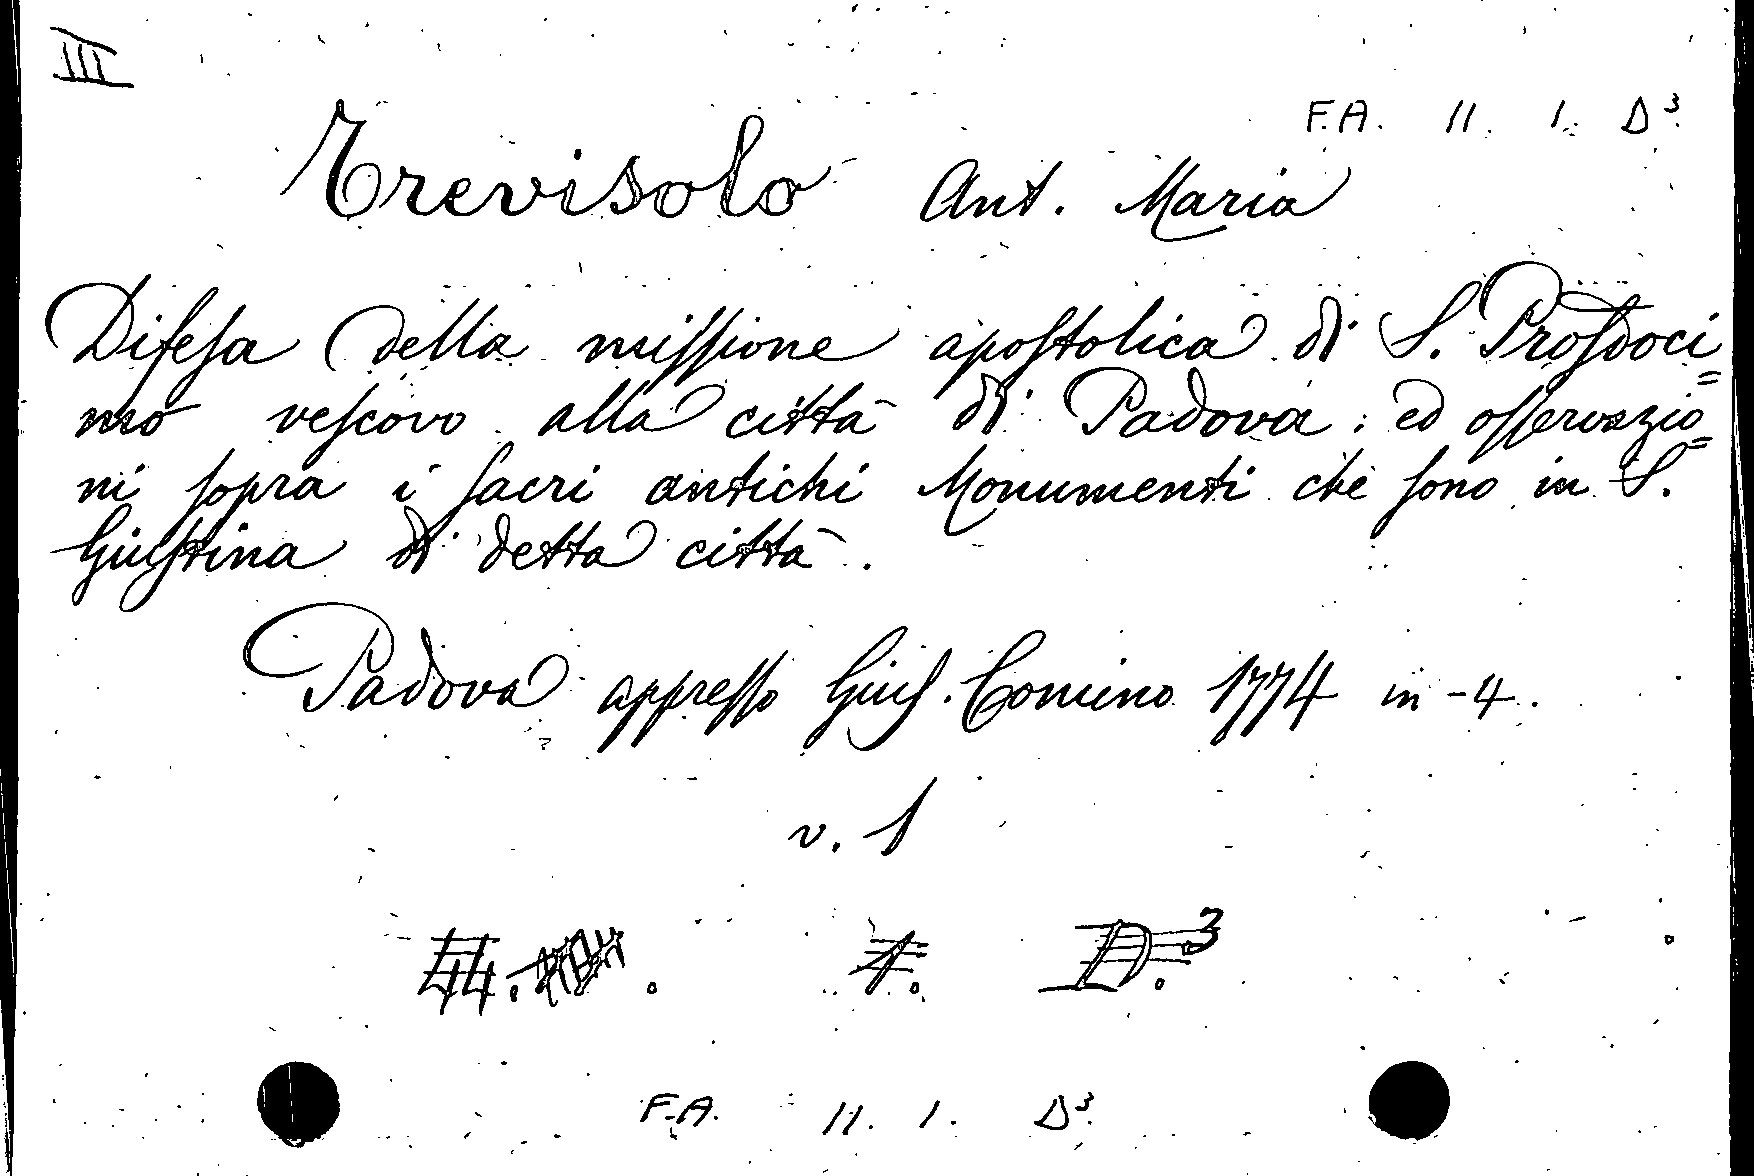 III
F.A. 11. 1. D³.
Trevisolo Ant. Maria
Difesa della missione apostolica di S. Prosdoci=
mo vescovo alla città di Padova: ed osservazio=
ni sopra i sacri antichi Monumenti che sono in S.
Giustina di detta città.
Padova appresso Gius. Comino 1774 in-4.
v. 1
1. D.³
F.A. 11. 1. D³.